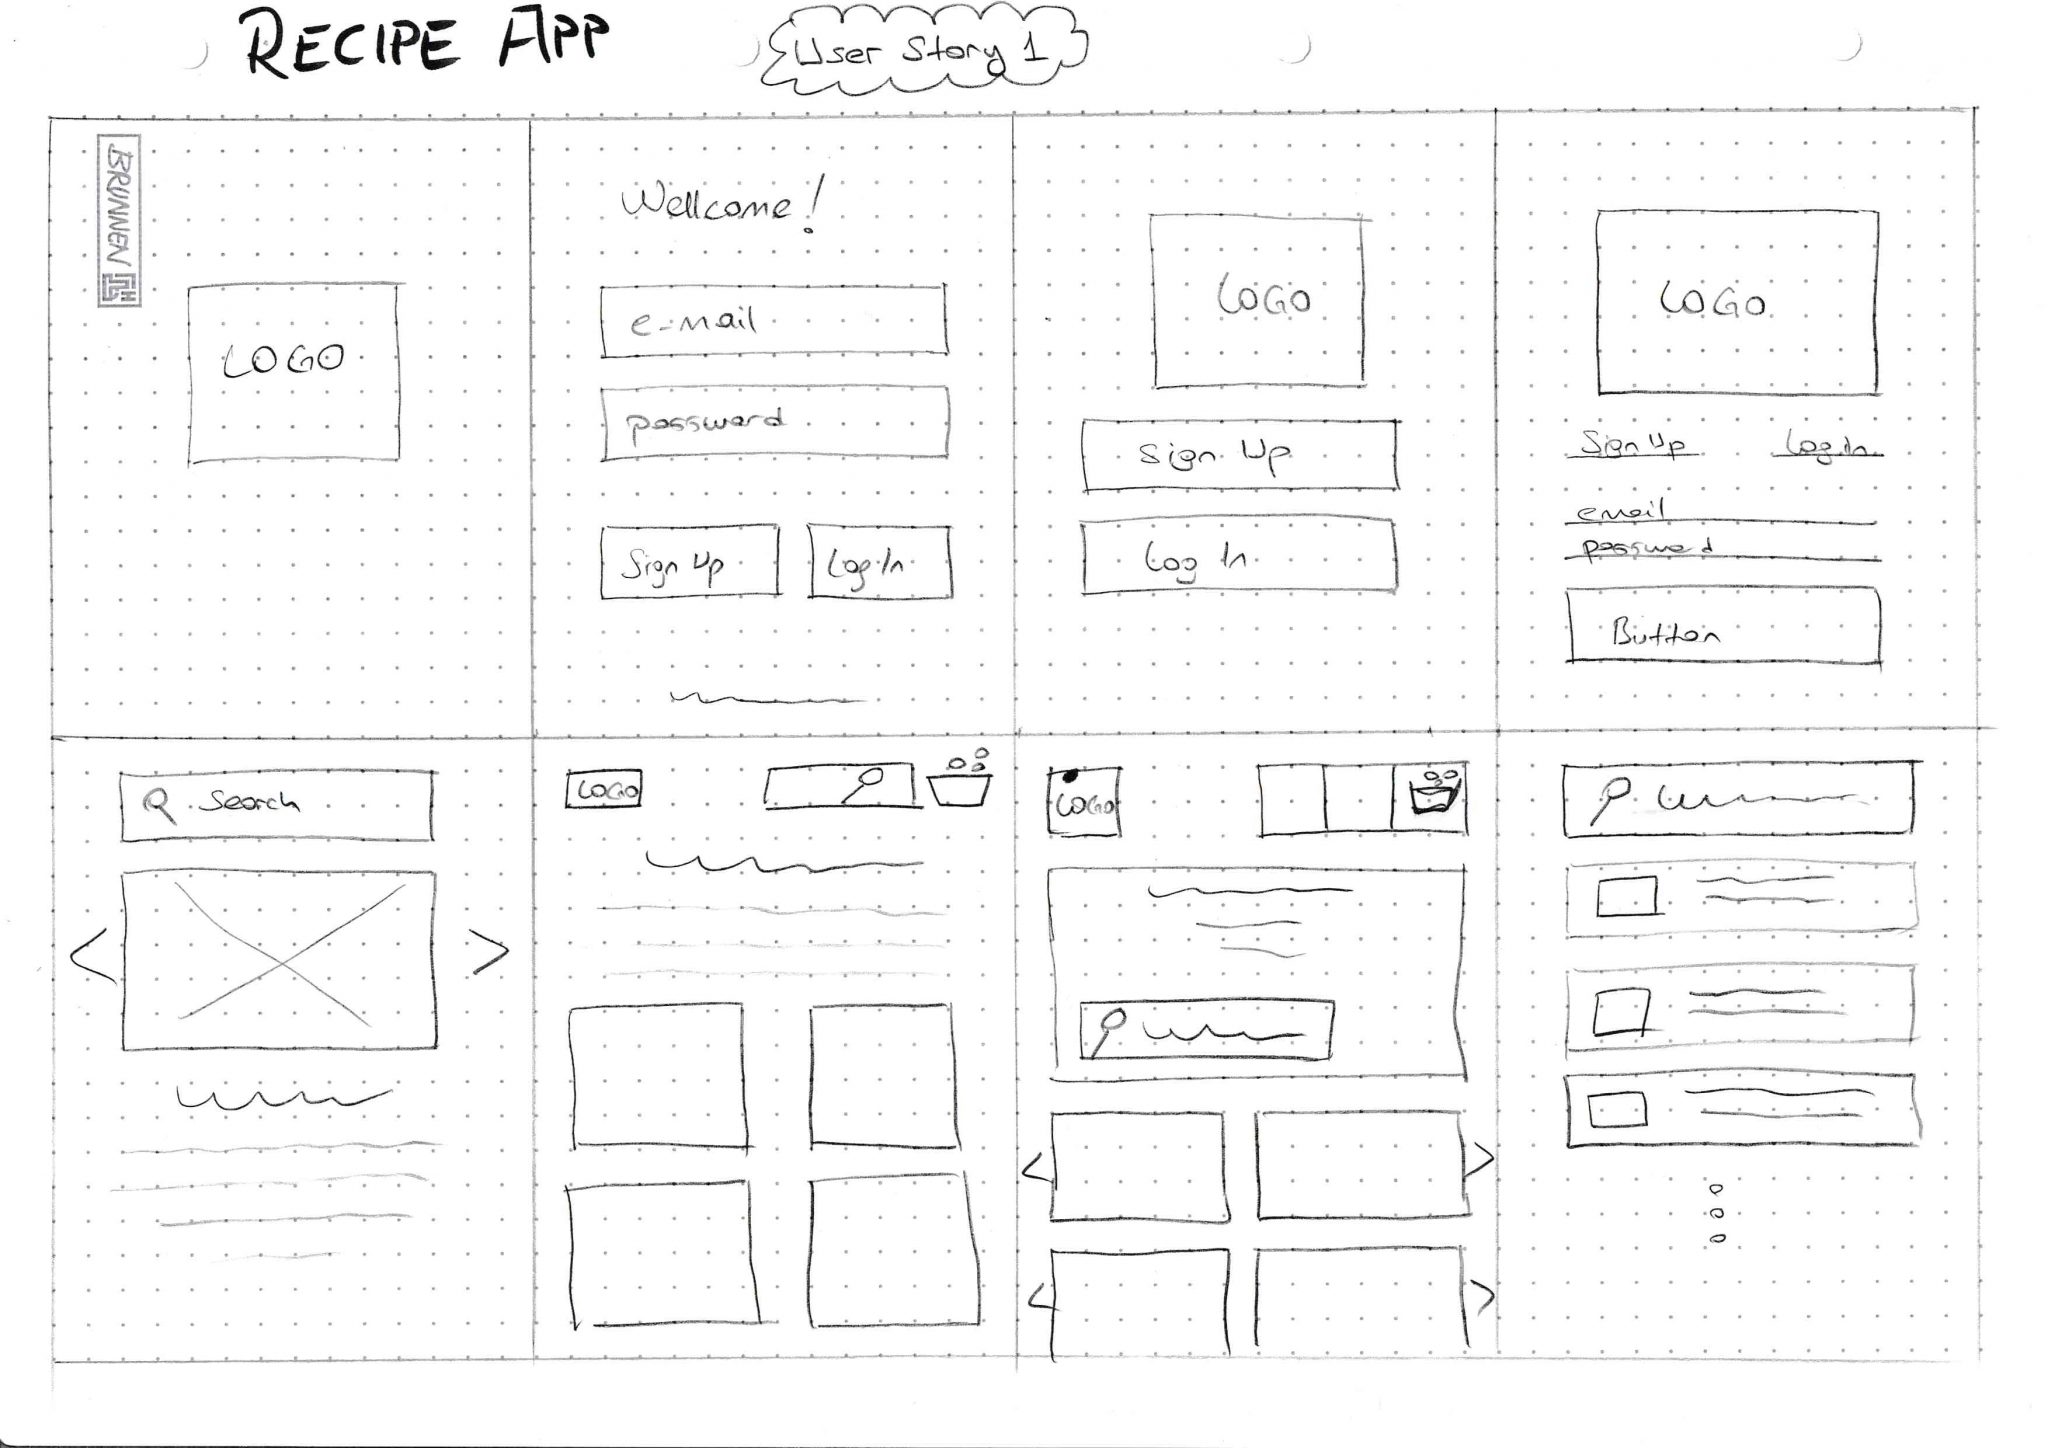 RECIPE APP
User Story 1
BRUNNEN
LOGO
Wellcome!
e-mail
password
Sign Up
Log In
LOGO
Sign Up
Log In
LOGO
Sign Up
Log In
email
password
Button
Search
LOGO
LOGO